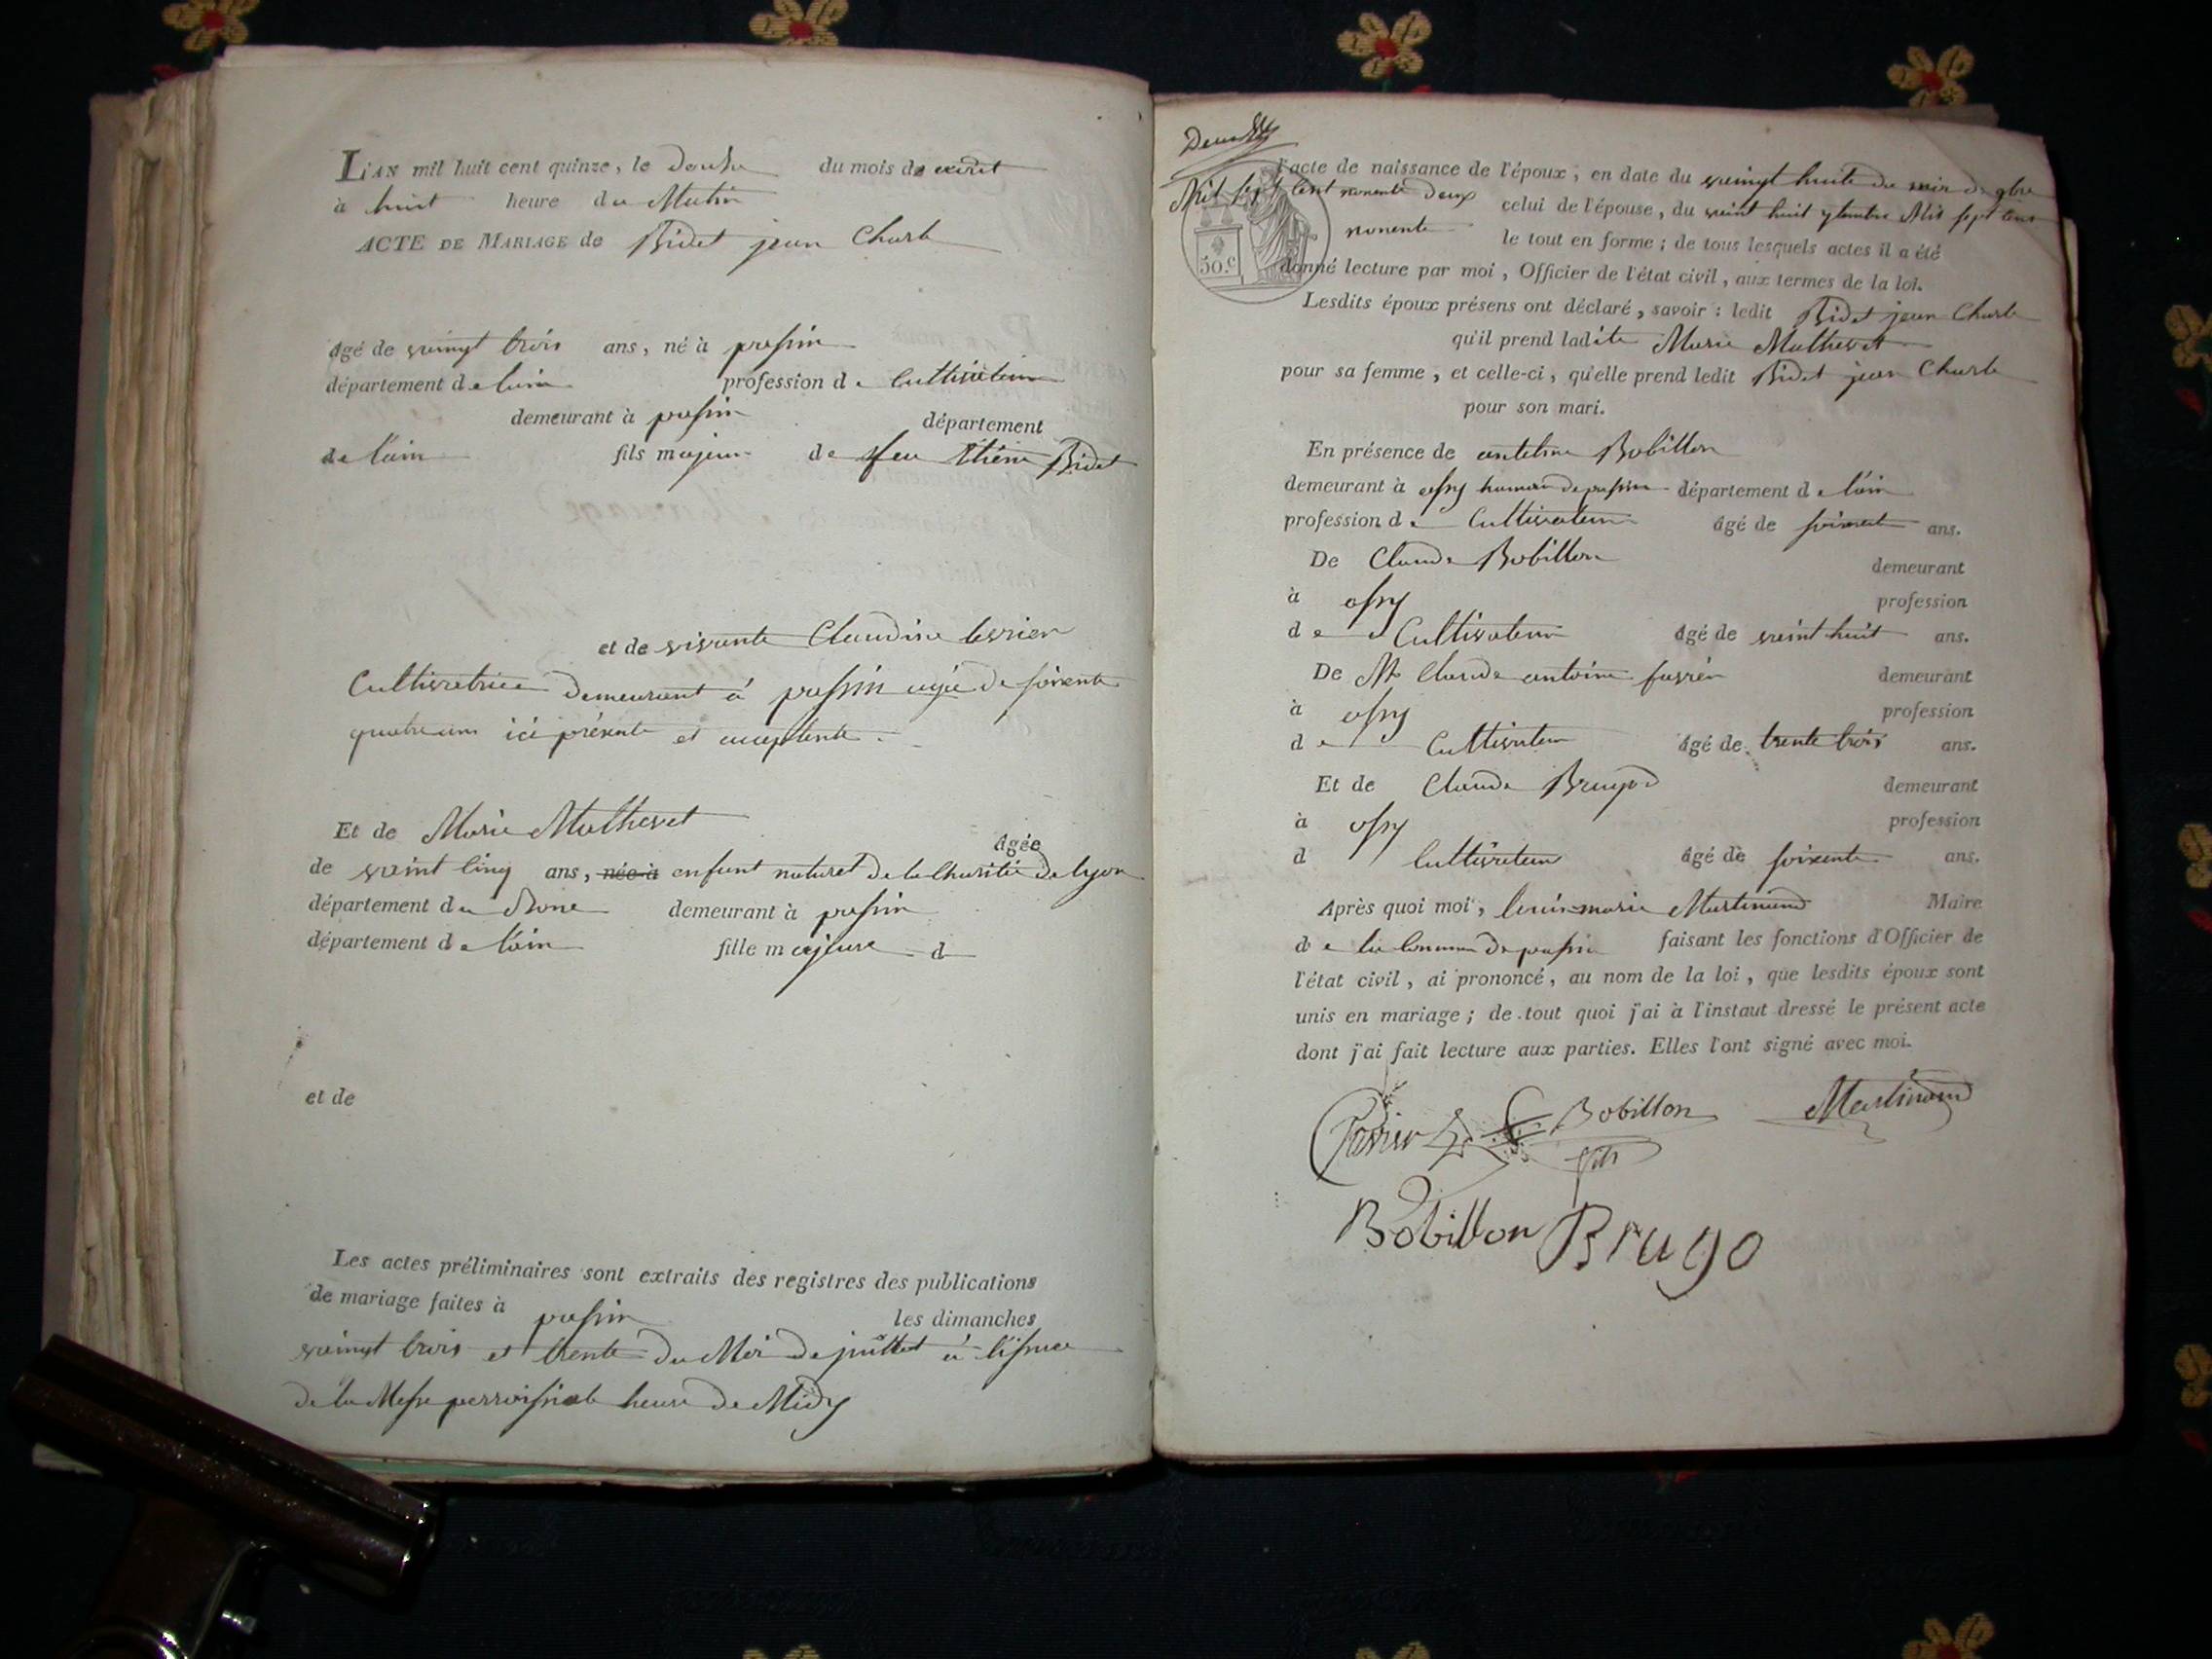 L'AN mil huit cent quinze, le douse du mois de aout
à huit heure du Matin
ACTE DE MARIAGE de Bidet jean Charle
âgé de vaingt trois ans, né à passin
département de lain profession de Cultivateur
demeurant à passin département
de lain fils majeur de feu Etiene Bidet
et de vivante Claudine
Cultivatrice demeurant à passin agée de soixente
quatre ans ici présente et aceptente.
Et de Marie Mathevet Agée
de vaint cinq ans, née à enfant naturel de la Charitée de lyon
département du Rone demeurant à passin
département de lain fille majeure d
et de
Les actes préliminaires sont extraits des registres des publications
de mariage faites à passin les dimanches
vaingt trois et trente du Moi de juillet à lissue
de la Messe parroissiale heure de Midy
l'acte de naissance de l'époux, en date du vaingt huite du moi de 9bre
Mil sept Cent nonente deux celui de l'épouse, du vaint huit Mil sept cens
nonente le tout en forme; de tous lesquels actes il a été
50.c donné lecture par moi, Officier de l'état civil, aux termes de la loi.
Lesdits époux présens ont déclaré, savoir: ledit Bidet jean Charle
qu'il prend ladite Marie Mathevet
pour sa femme, et celle-ci, qu'elle prend ledit Bidet jean Charle
pour son mari.
En présence de antelme Bobillon
demeurant à ossy hamau de passin département de lain
profession de Cultivateur âgé de soixent ans.
De Claude Bobillon demeurant
à ossy profession
de Cultivateur âgé de vaint huit ans.
De Mr Claude antoine favrier demeurant
à ossy profession
de Cultivateur âgé de trente trois ans.
Et de Claude Bruyod demeurant
à ossy profession
d Cultivateur âgé de soixente ans.
Après quoi moi, louis marie Martinand Maire
de la Commune de passin faisant les fonctions d'Officier de
l'état civil, ai prononcé, au nom de la loi, que lesdits époux sont
unis en mariage; de tout quoi j'ai à l'instant dressé le présent acte
dont j'ai fait lecture aux parties. Elles l'ont signé avec moi.
Bobillon Martinand
fils
Bobillon Brugo